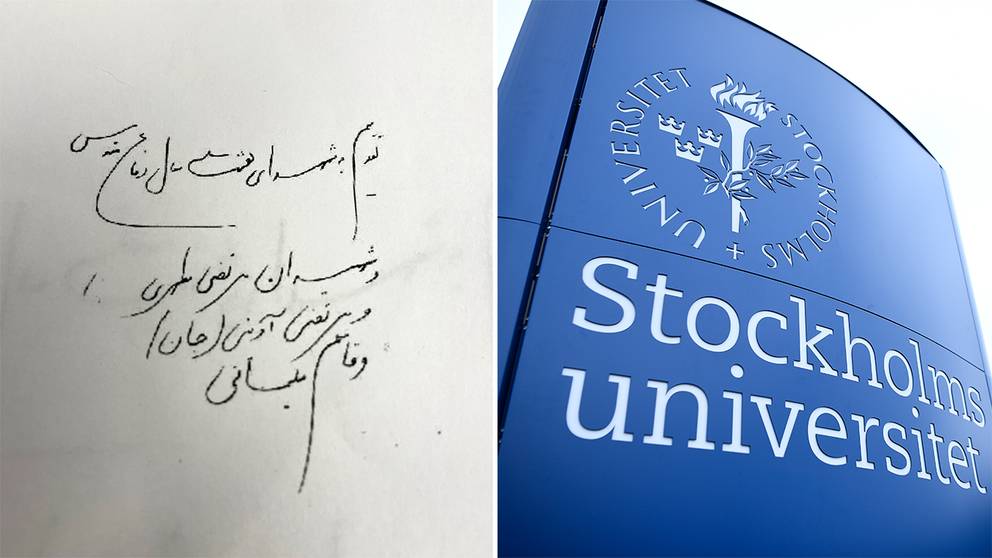 تقدیم به شهدای هشت سال دفاع مقدس
و شهیدان مرتضی مطهری
و مرتضی آوینی (جان)
و قاسم سلیمانی
STOCKHOLMS UNIVERSITET
Stockholms
universitet